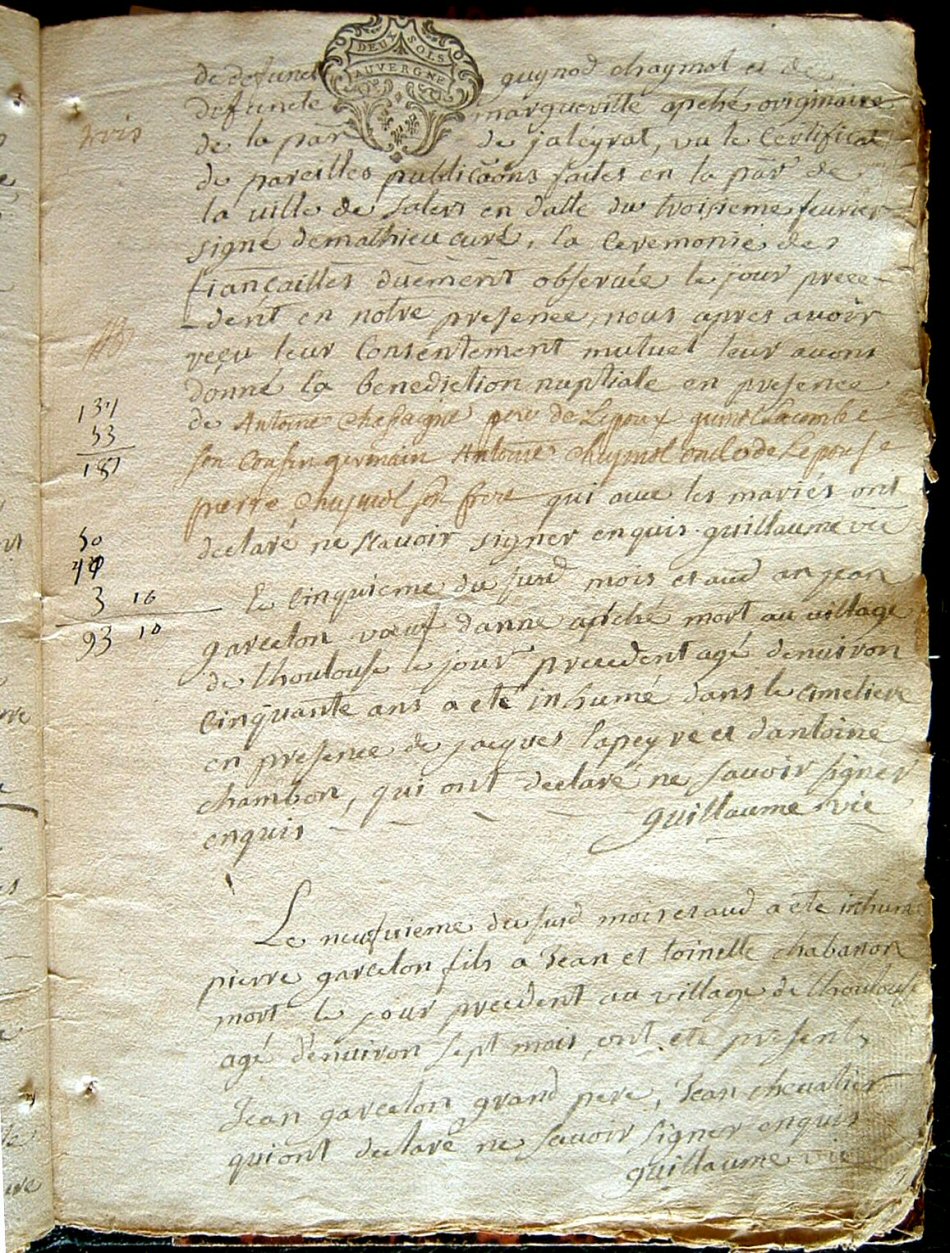 DEUX SOLS
AUVERGNE
de defunct guynod chaymol et de
defuncte margueritte apché originaire
de la par de jaleyrat, vu le Certificat
de pareilles publicaons faites en la par de
la ville de salers en datte du troisieme fevrier
signé demathieu curé, la Ceremonie des
fiançailles duement observée le jour prece-
-dent en notre presence, nous apres avoir
reçu leur Consentement mutuel leur avons
donné la benediction nuptiale en presence
de Antoine Chassagne pere de Lepoux Lacombe
son Cousin germain Antoine Chaymol oncle de Lepouse
pierre Chaymol son frere qui avec les mariés ont
declaré ne scavoir signer enquis. guillaume vic
137
53
187
50
3 10
93 10
Le cinquieme du susd mois et aud an jean
garcelon vœuf danne apché mort au village
de lhoulouse le jour precedent agé denviron
Cinquante ans a eté inhumé dans le cimetiere
en presence de jacques lapeyre et dantoine
chambon, qui ont declaré ne savoir signer
enquis guillaume vic
Le neufvieme du susd mois et aud a ete inhumé
pierre garcelon fils a Jean et toinette chabanon
mort le jour precedent au village de lhoulouse
agé denviron sept mois, ont eté presents
Jean garcelon grand pere, Jean chevalier
qui ont declaré ne savoir signer enquis
guillaume vic